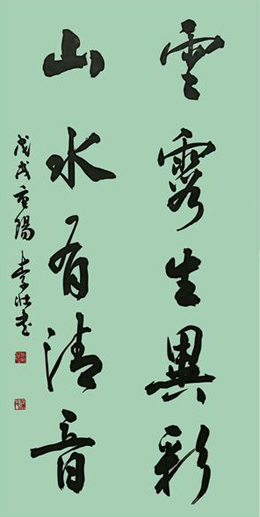 雲霞生異彩
山水有清音
戊戌重陽 李壯書